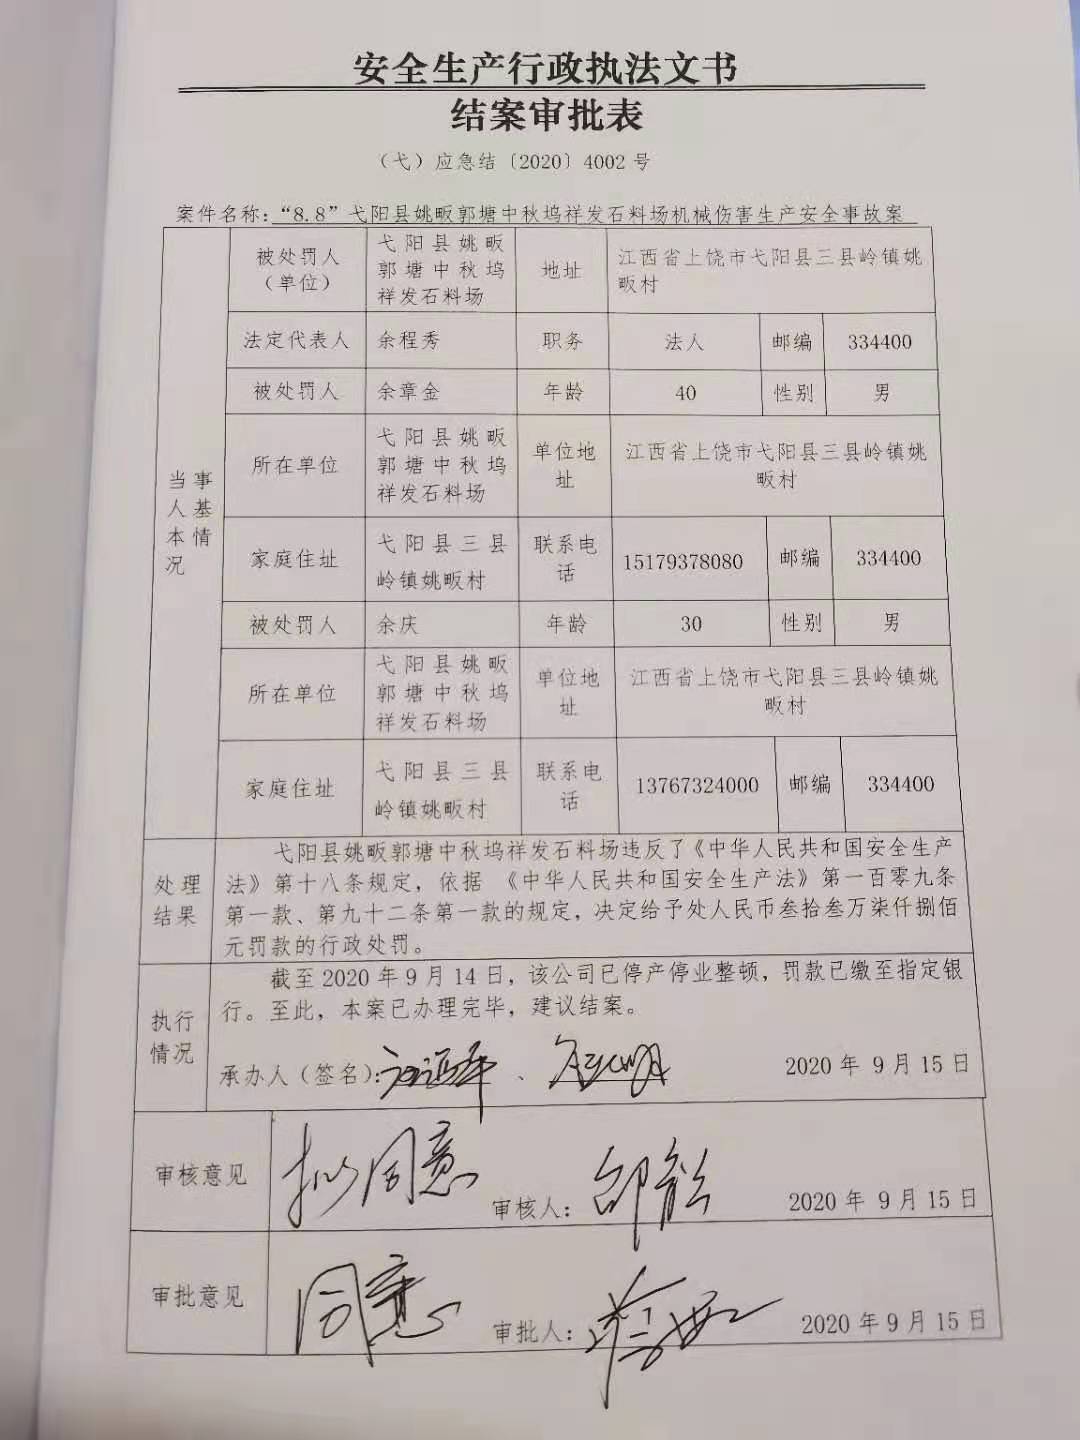 安全生产行政执法文书
结案审批表
（弋）应急结〔2020〕4002号
案件名称：“8.8”弋阳县姚畈郭塘中秋坞祥发石料场机械伤害生产安全事故案
当事人基本情况
被处罚人（单位） 弋阳县姚畈郭塘中秋坞祥发石料场 地址 江西省上饶市弋阳县三县岭镇姚畈村
法定代表人 余程秀 职务 法人 邮编 334400
被处罚人 余章金 年龄 40 性别 男
所在单位 弋阳县姚畈郭塘中秋坞祥发石料场 单位地址 江西省上饶市弋阳县三县岭镇姚畈村
家庭住址 弋阳县三县岭镇姚畈村 联系电话 15179378080 邮编 334400
被处罚人 余庆 年龄 30 性别 男
所在单位 弋阳县姚畈郭塘中秋坞祥发石料场 单位地址 江西省上饶市弋阳县三县岭镇姚畈村
家庭住址 弋阳县三县岭镇姚畈村 联系电话 13767324000 邮编 334400
处理结果
弋阳县姚畈郭塘中秋坞祥发石料场违反了《中华人民共和国安全生产
法》第十八条规定，依据 《中华人民共和国安全生产法》第一百零九条
第一款、第九十二条第一款的规定，决定给予处人民币叁拾叁万柒仟捌佰
元罚款的行政处罚。
执行情况
截至2020年9月14日，该公司已停产停业整顿，罚款已缴至指定银
行。至此，本案已办理完毕，建议结案。
承办人（签名）： 、 2020年 9月15日
审核意见 拟同意 审核人： 2020年 9月15日
审批意见 同意 审批人： 2020年9月15日